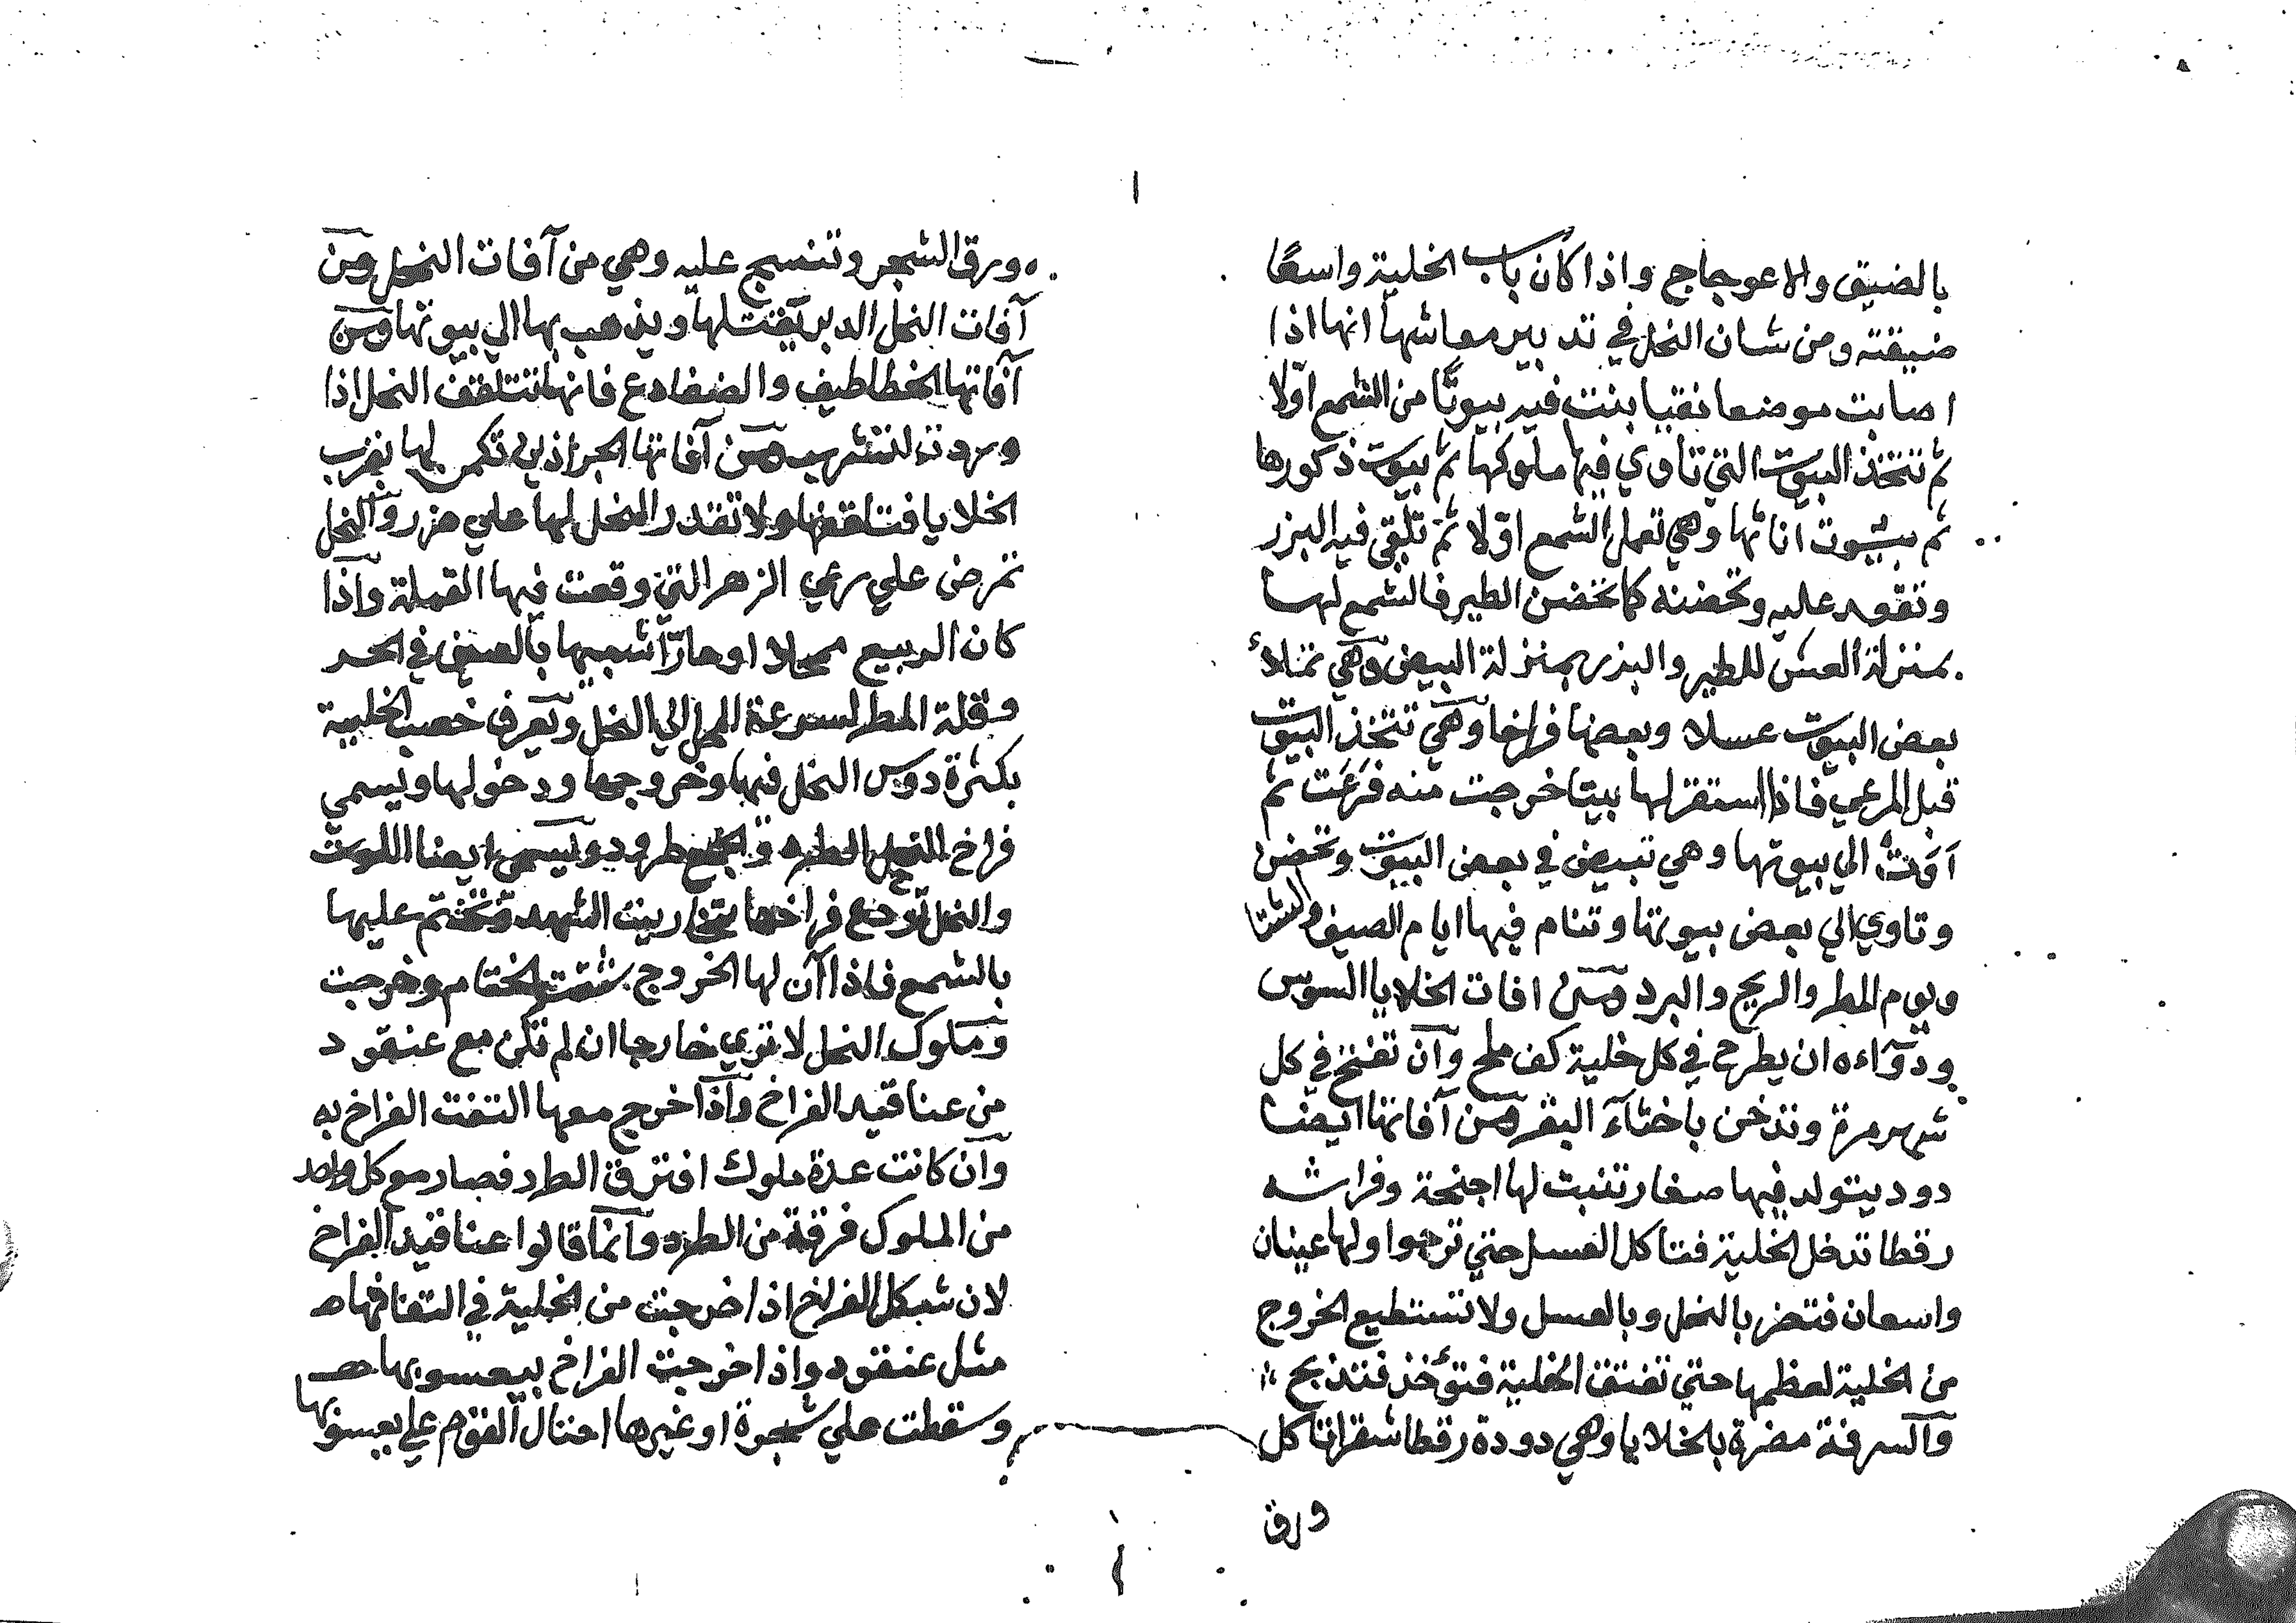 بالضيق والاعوجاج واذا كان باب الخلية واسعًا
ضيقته ومن شان النحل في تدبير معاشها انها اذا
اصابت موضعا نقيا بنت فيه بيوتًا من الشمع اوّلا
ثم تتخذ البيوت التي تاوي فيها ملوكها ثم بيوت ذكورها
ثم بيوت اناثها وهي تعمل الشمع اوّلا ثم تلقي فيه البزر
وتقود عليه وتحضنه كما تحضن الطير فالشمع لها
بمنزلة العش للطير والبزر بمنزلة البيض وهي تملاء
بعض البيوت عسلا وبعضها فراخا وهي تتخذ البيوت
قبل المرعي فاذا استقر لها بيتا خرجت منه فرعت ثم
آوت الي بيوتها وهي تبيض في بعض البيوت وتحضن
وتاوي الي بعض بيوتها وتنام فيها ايام الصيف والشتا
ويوم المطر والريح والبرد ومن افات الخلايا السوس
ودوآءه ان يطرح في كل خلية كف ملح وان تفتح في كل
شهر مرة وتدخن باخثآء البقر ومن آفاتها ايضا
دود يتولد فيها صغار تنبت لها اجنحة وفراشه
رقطا تدخل الخلية فتاكل العسل حتي تربوا ولها عينان
واسعان فتضر بالنحل وبالعسل ولا تستطيع الخروج
من الخلية لعظمها حتي تفتق الخلية فتؤخذ فتذبح
والسرفة مضرة بالخلايا وهي دودة رقطا شقرا تاكل
ورق
ورق الشجر وتنسج عليه وهي من آفات النحل ومن
آفات النحل الدبر يقتلها ويذهب بها الي بيوتها ومن
آفاتها الخطاطيف والضفادع فانها تتلقف النحل اذا
وردت لتشرب ومن آفاتها الجراذين تكمن لها بقرب
الخلايا فتلقفها ولا تقدر النحل لها علي ضرر والنحل
تمرض علي رعي الزهر التي وقعت فيها القملة واذا
كان الربيع ممحلا او حارّا شبيها بالصيف في الحر
وقلة المطر لسرعة المحل الي النحل ويعرف خصب الخلية
بكثرة دوس النحل فيها وخروجها ودخولها ويسمي
فراخ النحل الطرد والجمع طرود ويسمي ايضا اللوث
والنحل توضع فراخها بتخاريب الشهد وتختم عليها
بالشمع فاذا آن لها الخروج شقت الختام وخرجت
وملوك النحل لا تري خارجا ان لم تكن مع عنقود
من عناقيد الفراخ واذا خرج معها التفت الفراخ به
وان كانت عدة ملوك افترق الطرد فصار مع كل واحد
من الملوك فرقة من الطرد وانما قالوا عناقيد الفراخ
لان شكل الفراخ اذا خرجت من الخلية في التفافها
مثل عنقود واذا خرجت الفراخ بيعسوبها
وسقطت علي شجرة او غيرها احتال القوم علي يعسوبها